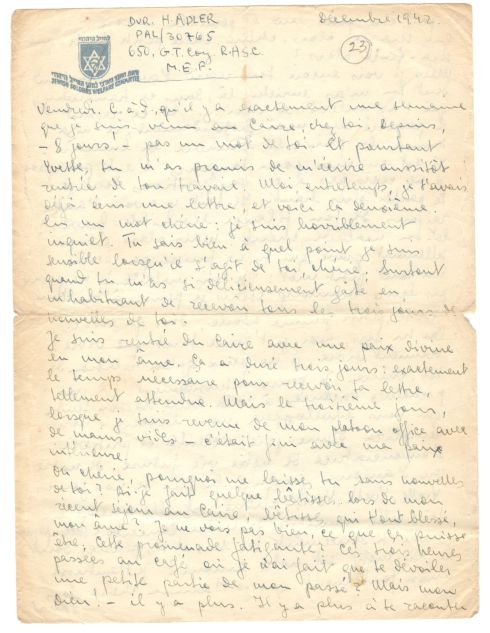 DVR. H. ADLER
PAL/30765
650, G.T. Coy R.A.S.C.
M.E.F.
Décembre 1942.
23
JEWISH SOLDIERS WELFARE COMMITTEE
Vendredi. C. à d. qu'il y a exactement une semaine
que je suis venu au Caire, chez toi. Depuis,
– 8 jours – pas un mot de toi. Et pourtant
Yvette, tu m'as promis de m'écrire aussitôt
rentrée de ton travail. Moi, entretemps, je t'avais
déjà écris une lettre, et voici la deuxième.
un mot chérie: je suis horriblement
inquiet. Tu sais bien à quel point je suis
sensible lorsqu'il s'agit de toi, chérie. Surtout
quand tu m'as si délicieusement gâté en
m'habituant de recevoir tous les trois jours de
nouvelles de toi.
Je suis rentré du Caire avec une paix divine
en mon âme. Ça a duré trois jours: exactement
le temps nécessaire pour recevoir ta lettre,
tellement attendue. Mais le troisième jour,
lorsque je suis revenu de mon platoon office avec
de mains vides – c'était fini avec ma paix
intérieure.
Oh chérie, pourquoi me laisses tu sans nouvelles
de toi? Ai-je fait quelque bêtises lors de mon
récent séjour au Caire, bêtises qui t'ont blessé,
mon âme? Je ne vois pas bien, ce que ça puisse
être. Cette promenade fatigante? Ces trois heures
passées au café, où je n'ai fait que te dévoiler
une petite partie de mon passé? Mais mon
dieu! – il y a plus. Il y a plus à te raconter